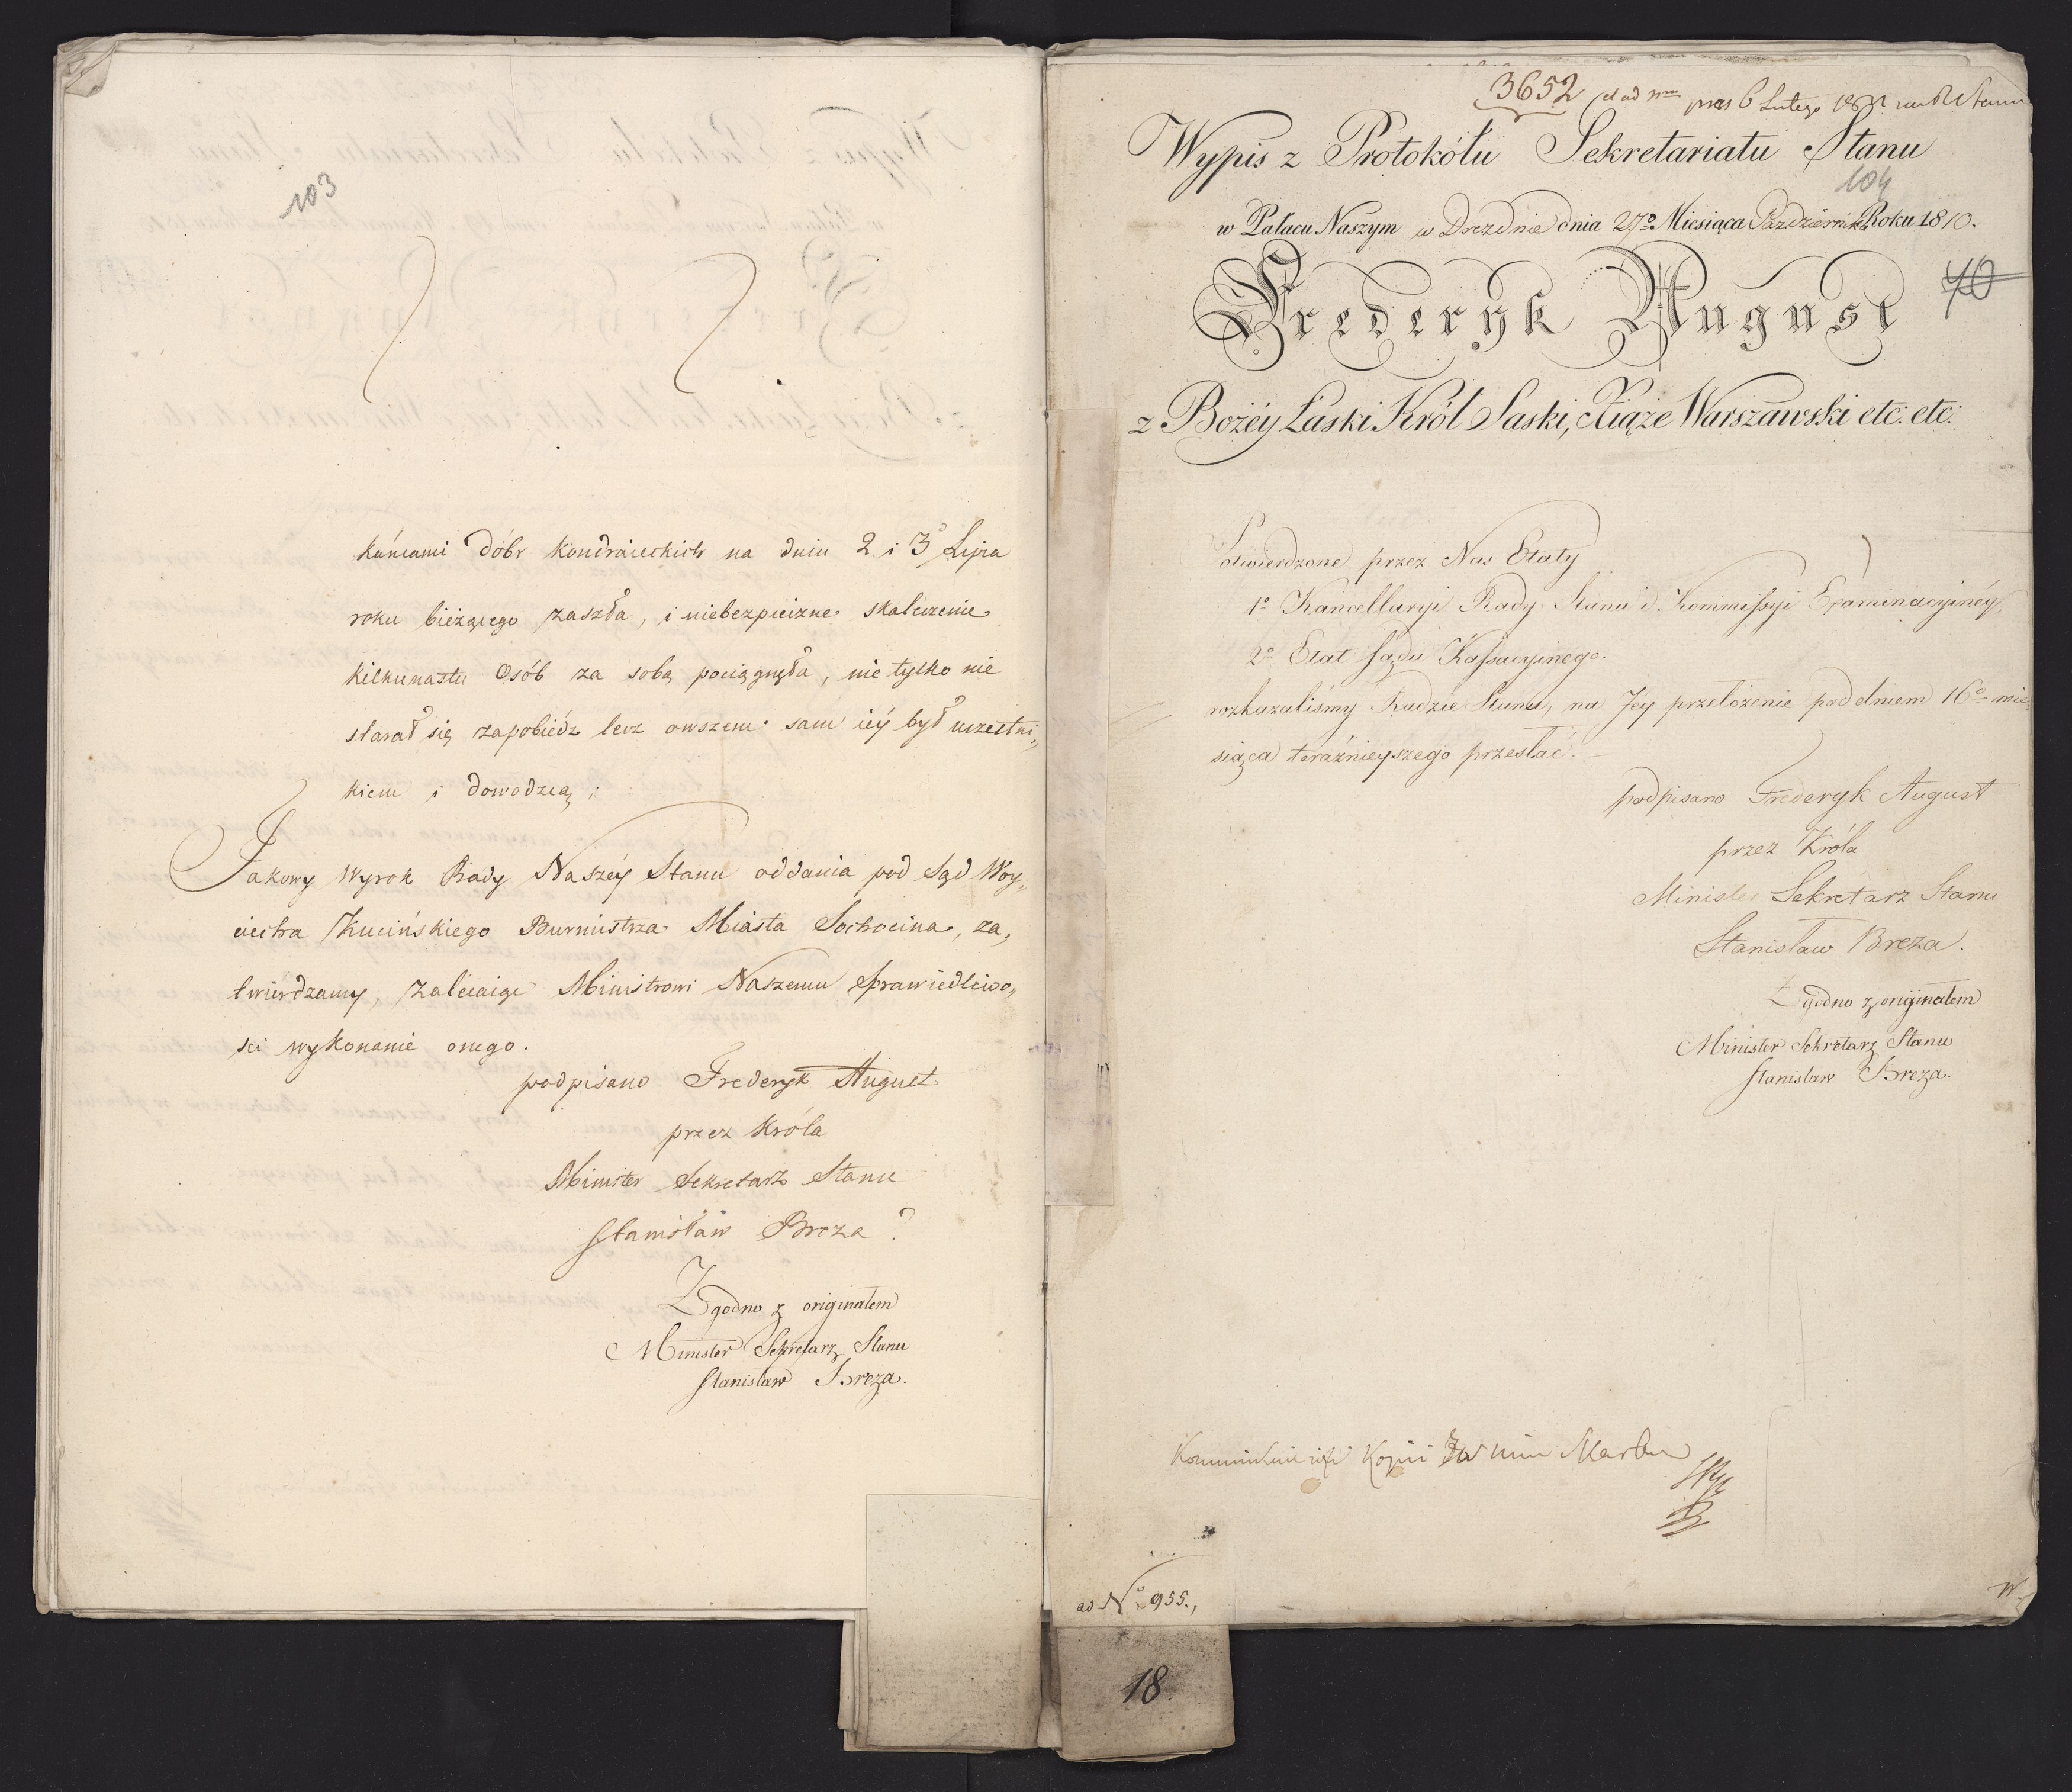 103
kańcami dóbr Kondraieckich na dniu 2 i 3° Lipca
roku bieżącego zaszła, i niebezpieczne skaleczenie
kilkunastu Osób za sobą pociągnęła, nie tylko nie
starał się zapobiedz lecz owszem sam iéy był uczestni„
kiem i dowodzcą;
Jakowy Wyrok Rady Naszéy Stanu oddania pod Sąd Woy„
ciecha Kucińskiego Burmistrza Miasta Sochocina, za„
twierdzamy, zalecaiąc Ministrowi Naszemu Sprawiedliwo„
sci wykonanie onego.
podpisano Frederyk August
przez Króla
Minister Sekretarz Stanu
Stanisław Breza
Zgodno z originałem
Minister Sekretarz Stanu
Stanisław Breza.
3652 pres 6 Lutego
Wypis z Protokółu Sekretariatu Stanu
104
w Pałacu Naszym w Dreznie dnia 27° Miesiąca Października Roku 1810.
Frederyk August
40
z Bożéy Łaski Król Saski, Xiąże Warszawski etc: etc:
Potwierdzone przez Nas Etaty
1° Kancellaryi Rady Stanu i Kommissyi Examinacyinéy,
2° Etat Sądu Kassacyinego.
rozkazaliśmy Radzie Stanu, na Jey przełożenie pod dniem 16° mie„
siąca teraźnieyszego przesłać.
podpisano Frederyk August
przez Króla
Minister Sekretarz Stanu
Stanisław Breza.
Zgodno z originałem
Minister Sekretarz Stanu
Stanisław Breza.
Kopii
ad N° 955.,
18